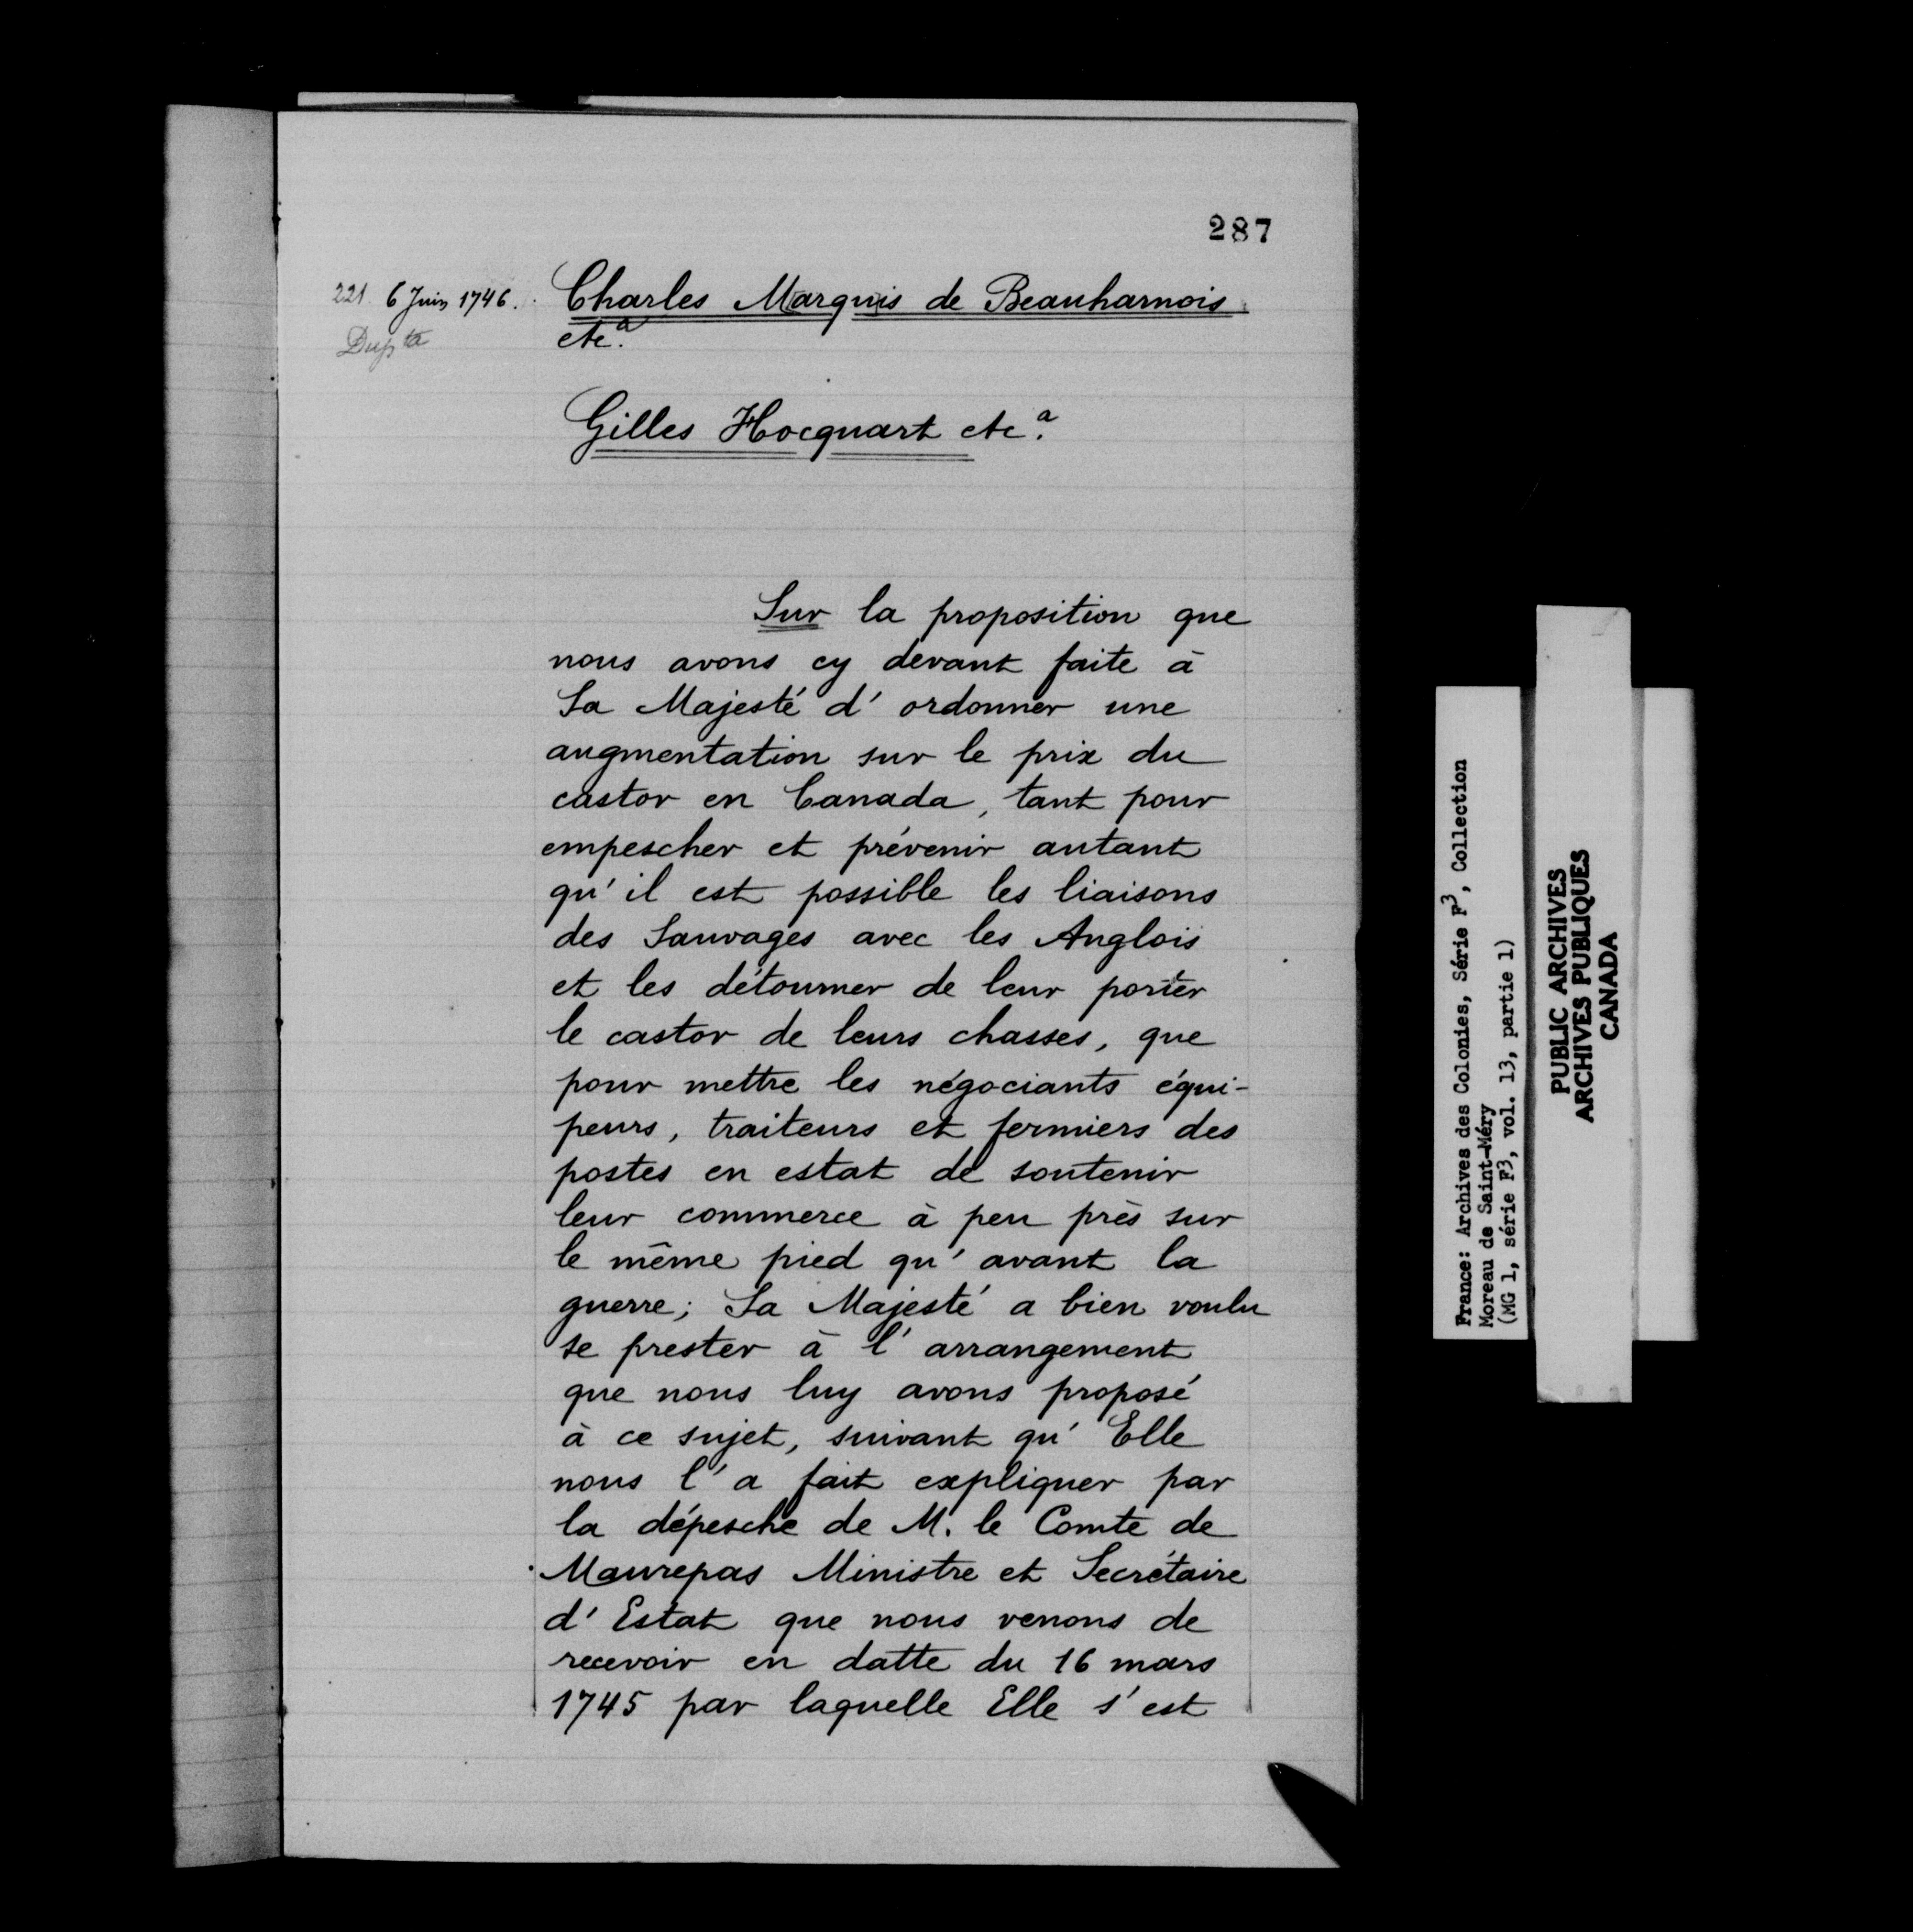 287
221. 6 Juin 1746.
Charles Marquis de Beauharnois
etc.a
Gilles Hocquart etc.a
Sur la proposition que
nous avons cy devant faite à
Sa Majesté d'ordonner une
augmentation sur le prix du
castor en Canada, tant pour
empescher et prévenir autant
qu'il est possible les liaisons
des Sauvages avec les Anglois
et les détourner de leur porter
le castor de leurs chasses, que
pour mettre les négociants équi-
peurs, traiteurs et fermiers des
postes en estat de soutenir
leur commerce à peu près sur
le même pied qu'avant la
guerre; Sa Majesté a bien voulu
se prester à l'arrangement
que nous luy avons proposé
à ce sujet, suivant qu'Elle
nous l'a fait expliquer par
la dépesche de M. le Comte de
Maurepas Ministre et Secrétaire
d'Estat que nous venons de
recevoir en datte du 16 mars
1745 par laquelle Elle s'est
France: Archives des Colonies, Série F3, Collection
Moreau de Saint-Méry
(MG 1, série F3, vol. 13, partie 1)
PUBLIC ARCHIVES
ARCHIVES PUBLIQUES
CANADA